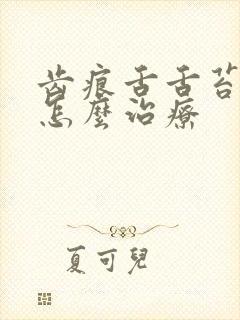 齿痕舌舌苔
怎麼治療
夏可兒